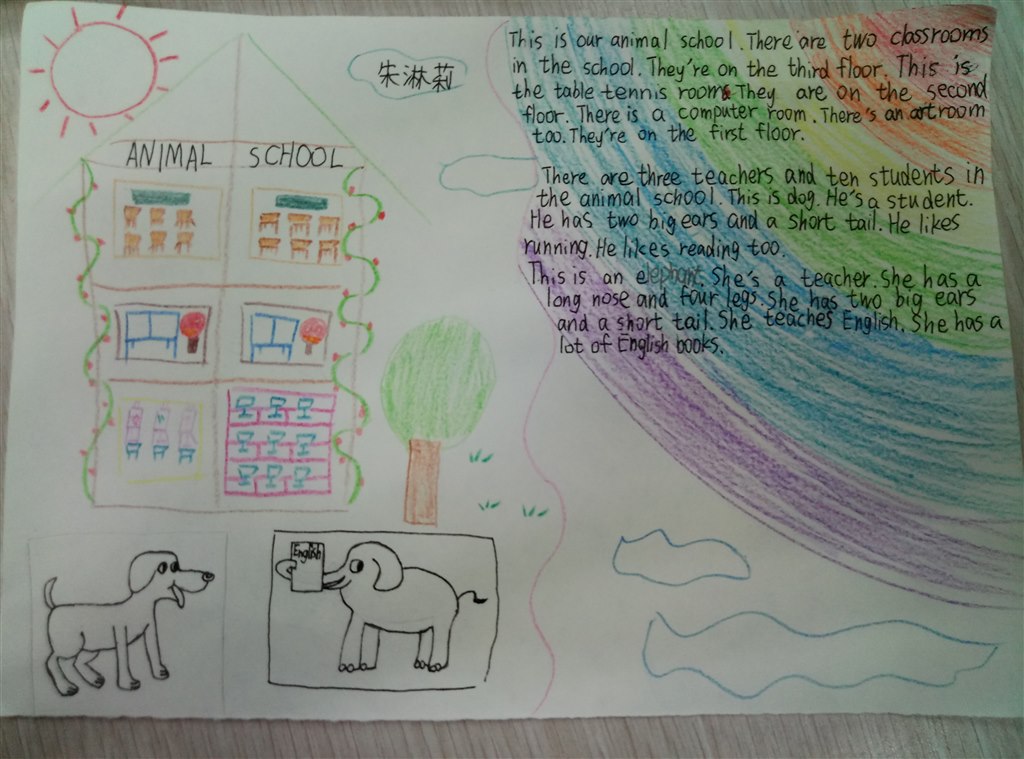 朱淋莉
ANIMAL SCHOOL
This is our animal school. There are two classrooms
in the school. They're on the third floor. This is
the table tennis rooms. They are on the second
floor. There is a computer room. There's an artroom
too. They're on the first floor.
There are three teachers and ten students in
the animal school. This is dog. He's a student.
He has two big ears and a short tail. He likes
running. He likes reading too.
This is an elephant. She's a teacher. She has a
long nose and four legs. She has two big ears
and a short tail. She teaches English. She has a
lot of English books.
English